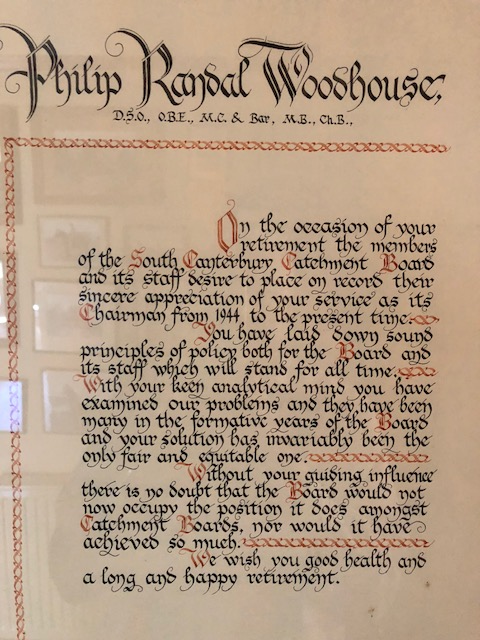 Philip Randal Woodhouse,
D.S.O., O.B.E., M.C. & Bar, M.B., Ch.B.,
On the occasion of your
retirement the members
of the South Canterbury Catchment Board
and its staff desire to place on record their
sincere appreciation of your service as its
Chairman from 1944, to the present time.
You have laid down sound
principles of policy both for the Board and
its staff which will stand for all time.
With your keen analytical mind you have
examined our problems and they, have been
many in the formative years of the Board
and your solution has invariably been the
only fair and equitable one.
Without your guiding influence
there is no doubt that the Board would not
now occupy the position it does amongst
Catchment Boards, nor would it have
achieved so much.
We wish you good health and
a long and happy retirement.